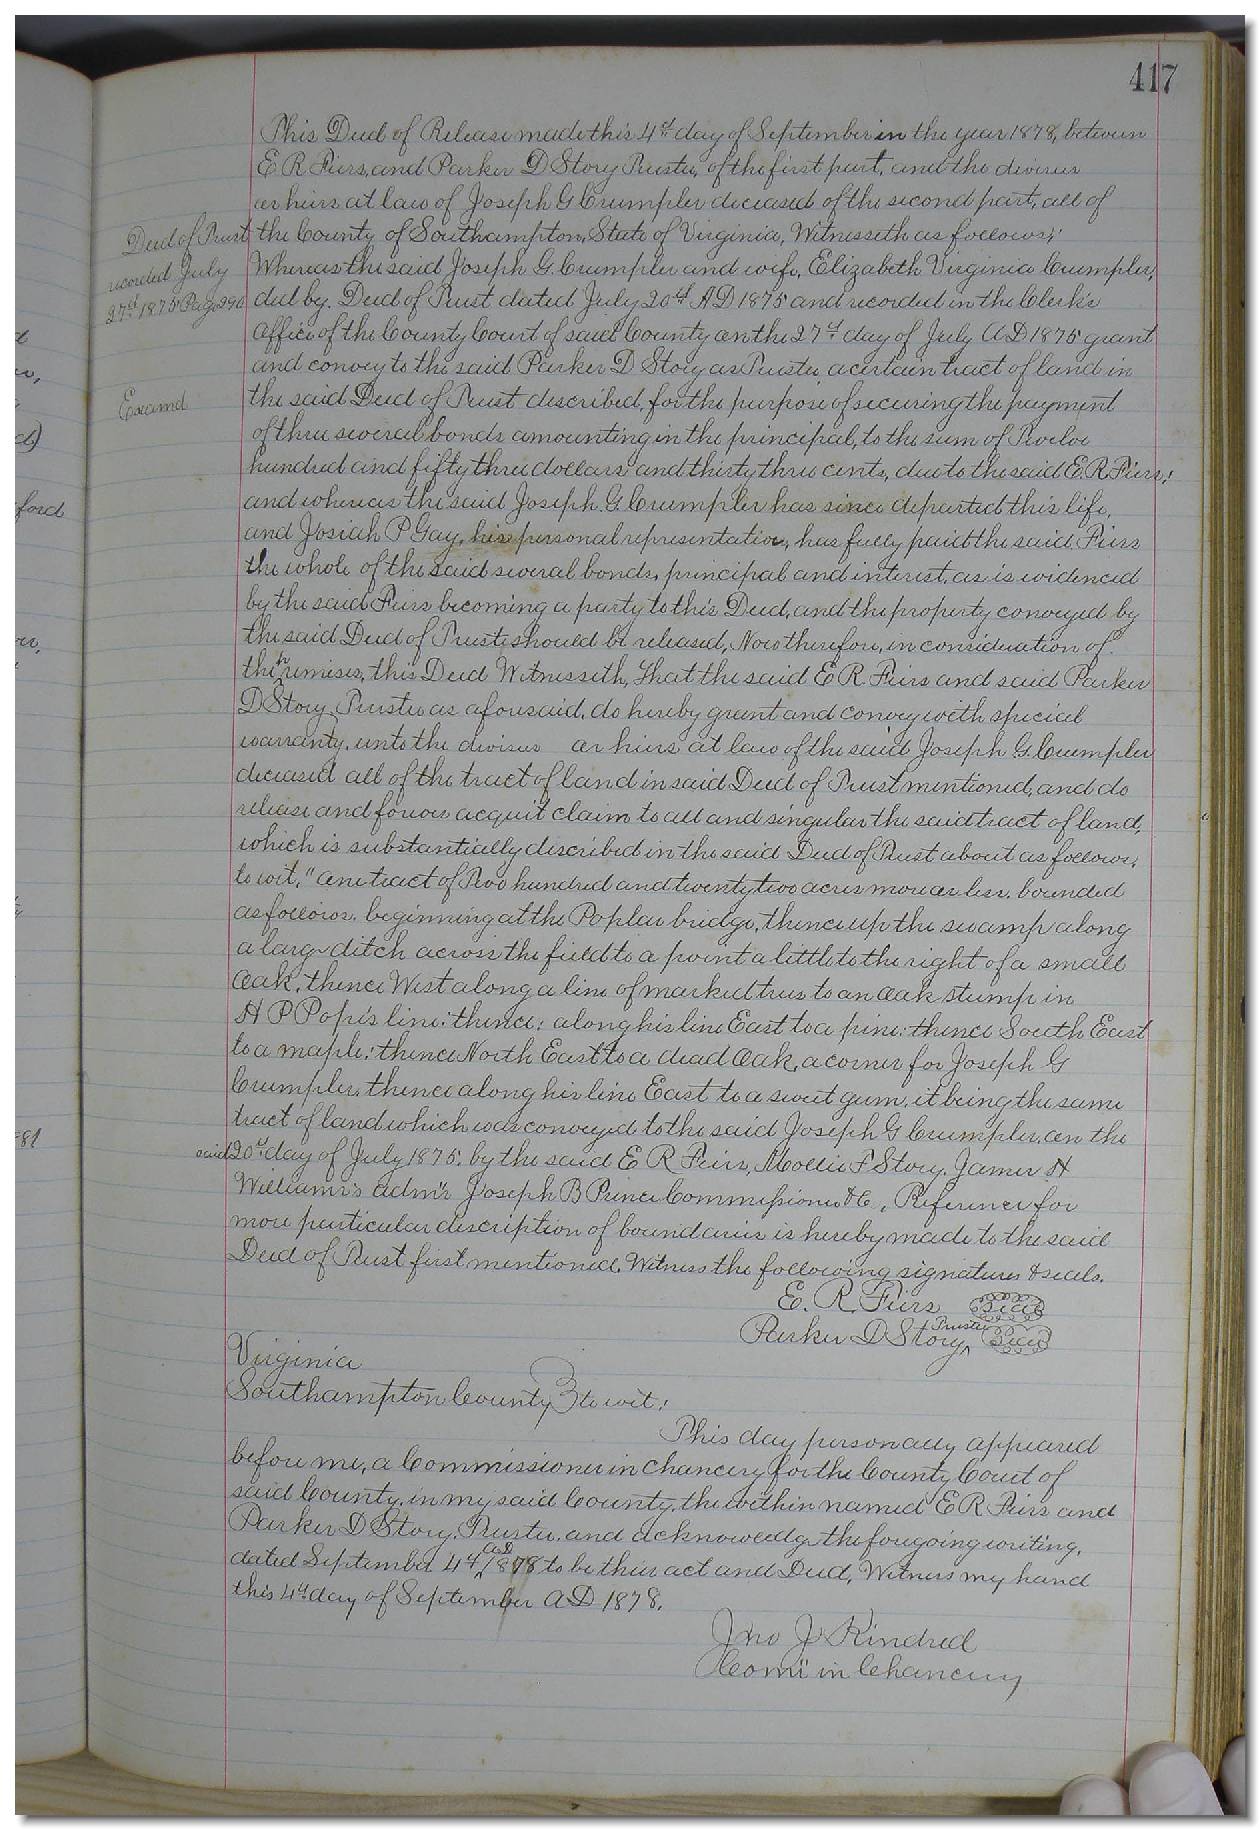 417
This Deed of Release made this 4th day of September in the year 1878, between
E R Fiers, and Parker D Story Trustee, of the first part, and the devisees
or heirs at law of Joseph G Crumpler deceased of the second part, all of
Deed of Trust
recorded July
27th 1875 Page 290
the County of Southampton, State of Virginia, Witnesseth as follows;
Whereas the said Joseph G. Crumpler and wife, Elizabeth Virginia Crumpler,
did by Deed of Trust dated July 20th A D 1875 and recorded in the Clerk's
Office of the County Court of said County on the 27th day of July A D 1875 grant
and convey to the said Parker D Story as Trustee, a certain tract of land in
Examd
the said Deed of Trust described, for the purpose of securing the payment
of three several bonds amounting in the principal, to the sum of Twelve
hundred and fifty three dollars and thirty three cents, due to the said E. R Fiers;
and whereas the said Joseph G. Crumpler has since departed this life,
and Josiah P Gay, his personal representative, has fully paid the said Fiers
the whole of the said several bonds, principal and interest, as is evidenced
by the said Fiers becoming a party to this Deed, and the property conveyed by
the said Deed of Trust should be released, Now therefore, in consideration of
the premises, this Deed Witnesseth, That the said E R. Fiers and said Parker
D Story Trustee as aforesaid, do hereby grant and convey with special
warranty, unto the devisees or heirs at law of the said Joseph G. Crumpler
deceased all of the tract of land in said Deed of Trust mentioned, and do
release and forever acquit claim to all and singular the said tract of land,
which is substantially described in the said Deed of Trust about as follows,
to wit, "one tract of Two hundred and twenty two acres more or less, bounded
as follows, beginning at the Poplar bridge, thence up the swamp along
a large ditch across the field to a point a little to the right of a small
Oak, thence West along a line of marked trees to an Oak stump in
H P Pope's line: thence: along his line East to a pine: thence South East
to a maple: thence North East to a dead Oak, a corner for Joseph G
Crumpler, thence along his line East to a sweet gum, it being the same
tract of land which was conveyed to the said Joseph G Crumpler, on the
said 20th day of July 1875, by the said E R Fiers, Mollie F Story, James H
Williams's adm'r Joseph B Prince Commissioner &c, Reference for
more particular description of boundaries is hereby made to the said
Deed of Trust first mentioned. Witness the following signatures & seals.
E. R. Fiers Seal
Parker D Story, Trustee Seal
Virginia
Southampton County to wit:
This day personally appeared
before me, a Commissioner in Chancery for the County Court of
said County, in my said County, the within named E R Fiers and
Parker D Story, Trustee, and acknowledge the foregoing writing,
dated September 4th AD 1878 to be their act and Deed, Witness my hand
this 4th day of September A D 1878.
Jno J Kindred
Comr in Chancery
ford
81